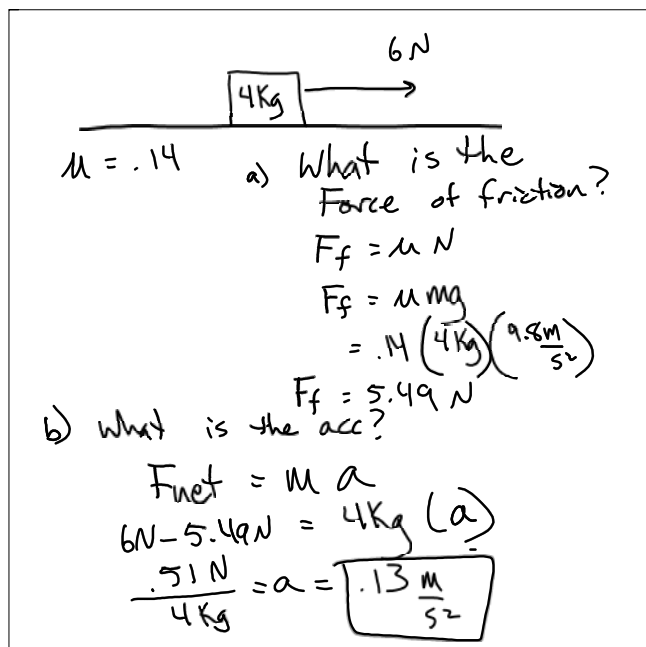 6N
4Kg
μ = .14
a) What is the
Force of friction?
Ff = μ N
Ff = μ mg
= .14 (4Kg)(9.8 m/s²)
Ff = 5.49 N
b) What is the acc?
Fnet = m a
6N - 5.49N = 4Kg (a)
.51 N / 4Kg = a = .13 m/s²